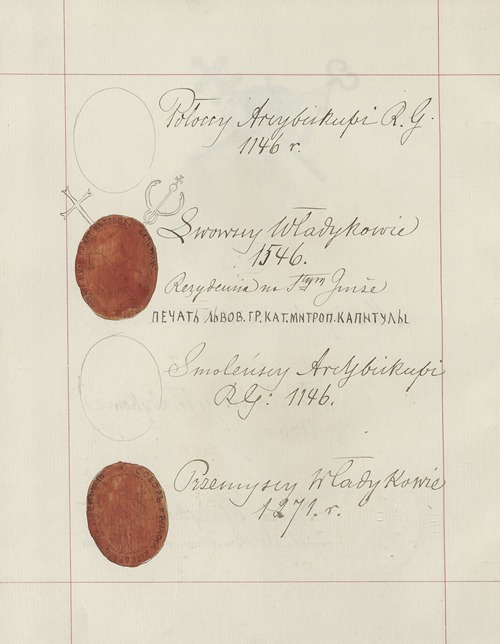 Połoccy Arcybiskupi R. G.
1146 r.
Lwowscy Władykowie
1546.
Rezydencia na Stym Jurze
ПЕЧАТЬ ЛЬВОВ. ГР. КАТ. МИТРОП. КАПИТУЛЫ
Smoleńscy Arcybiskupi
RG: 1146.
Przemyscy Władykowie
1271. r.